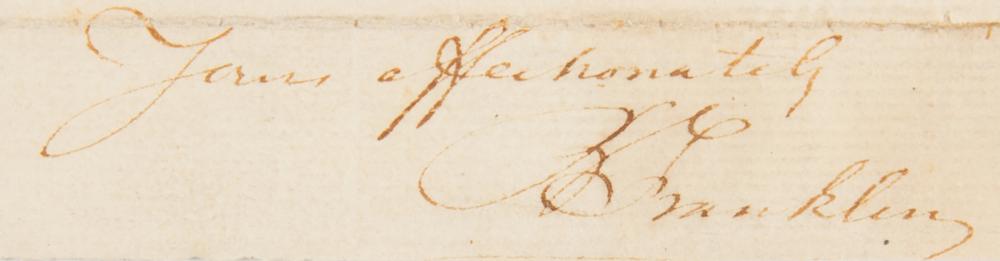 Yours affectionately
B Franklin